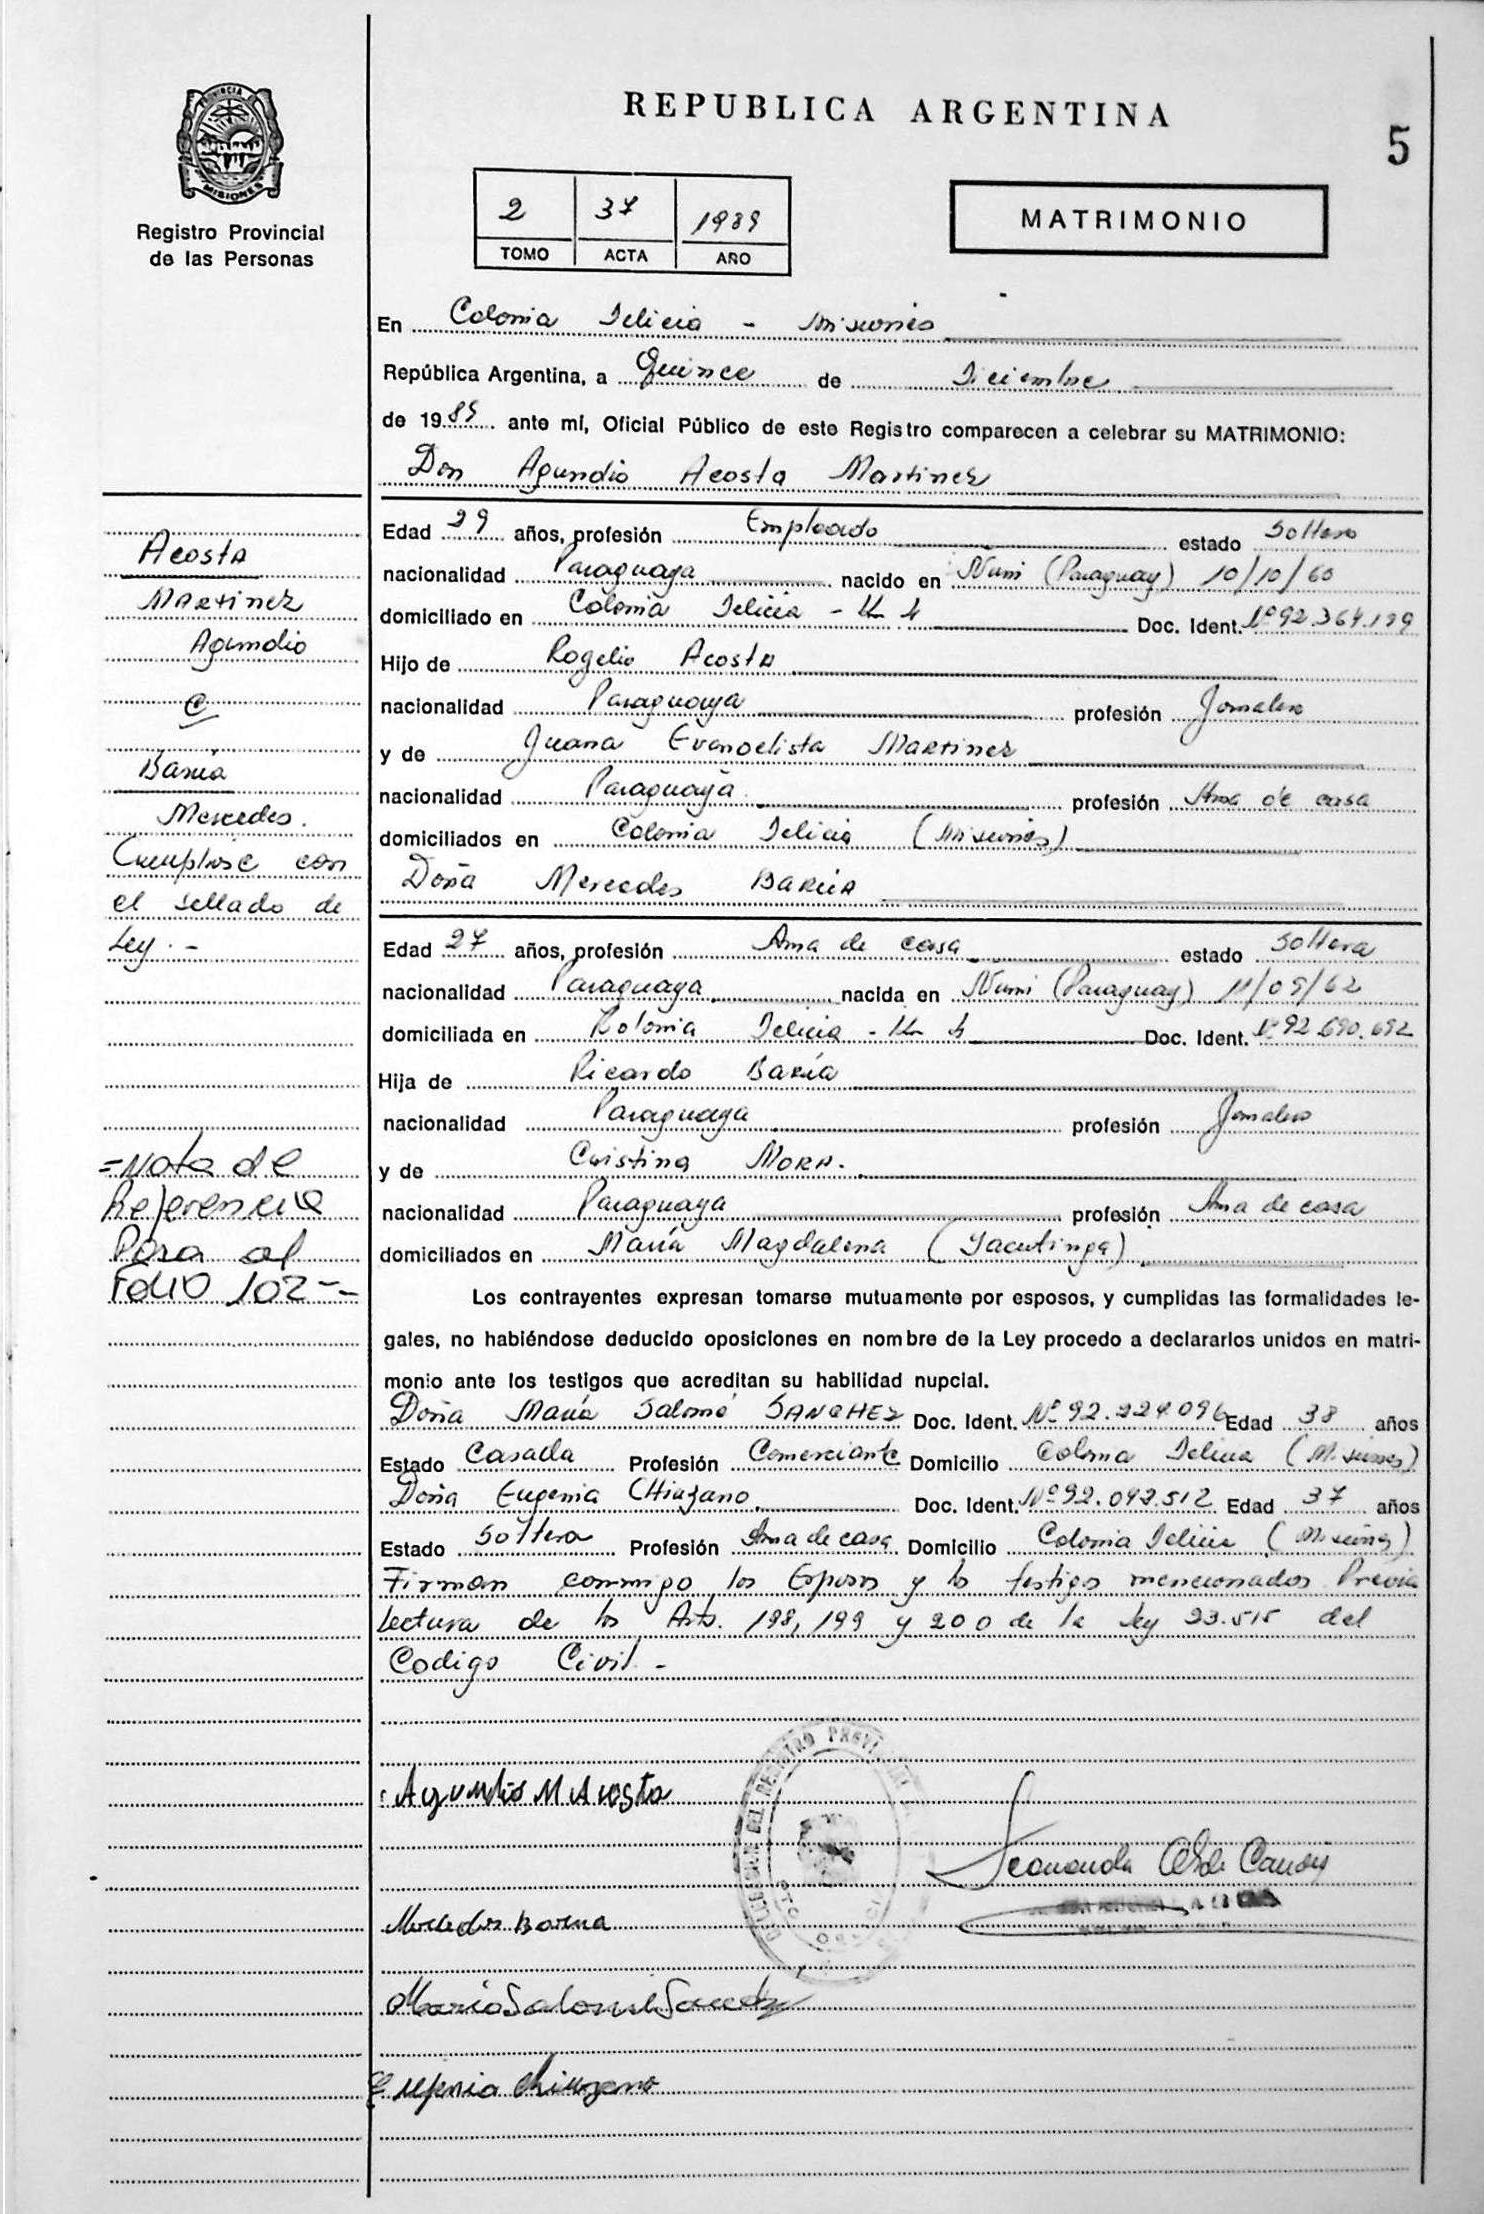 PROVINCIA
MISIONES
Registro Provincial
de las Personas
REPUBLICA ARGENTINA
5
2 37 1989
TOMO ACTA AÑO
MATRIMONIO
En Colonia Delicia - Misiones
República Argentina, a Quince de Diciembre
de 1989 ante mí, Oficial Público de este Registro comparecen a celebrar su MATRIMONIO:
Don Agundio Acosta Martinez
Edad 29 años, profesión Empleado estado Soltero
nacionalidad Paraguaya nacido en Ñumi (Paraguay) 10/10/60
domiciliado en Colonia Delicia - Km 4 Doc. Ident. Nº 92.364.199
Hijo de Rogelio Acosta
nacionalidad Paraguaya profesión Jornalero
y de Juana Evangelista Martinez
nacionalidad Paraguaya profesión Ama de casa
domiciliados en Colonia Delicia (Misiones)
Doña Mercedes Barúa
Edad 27 años, profesión Ama de casa estado Soltera
nacionalidad Paraguaya nacida en Ñumi (Paraguay) 11/09/62
domiciliada en Kolonia Delicia - Km 4 Doc. Ident. Nº 92.690.692
Hija de Ricardo Barúa
nacionalidad Paraguaya profesión Jornalero
y de Cristina Mora.
nacionalidad Paraguaya profesión Ama de casa
domiciliados en María Magdalena (Yacutinga)
Los contrayentes expresan tomarse mutuamente por esposos, y cumplidas las formalidades le-
gales, no habiéndose deducido oposiciones en nombre de la Ley procedo a declararlos unidos en matri-
monio ante los testigos que acreditan su habilidad nupcial.
Doña María Salomé SANCHEZ Doc. Ident. Nº 92.224.096 Edad 38 años
Estado Casada Profesión Comerciante Domicilio Colonia Delicia (Misiones)
Doña Eugenia Chirzano Doc. Ident. Nº 92.043.512 Edad 37 años
Estado Soltera Profesión Ama de casa Domicilio Colonia Delicia (Misiones)
Firman conmigo los Esposos y los testigos mencionados Previa
lectura de los Arts. 198, 199 y 200 de la Ley 23.515 del
Codigo Civil -
Acosta
Martinez
Agundio
C
Barúa
Mercedes.
Cumplióse con
el sellado de
Ley. -
= Nota de
Referencia
Pasa al
Folio 102 --
Agundio M Acosta
Mercedes Barua
Maria Salome Sanchez
Eugenia Chirzano